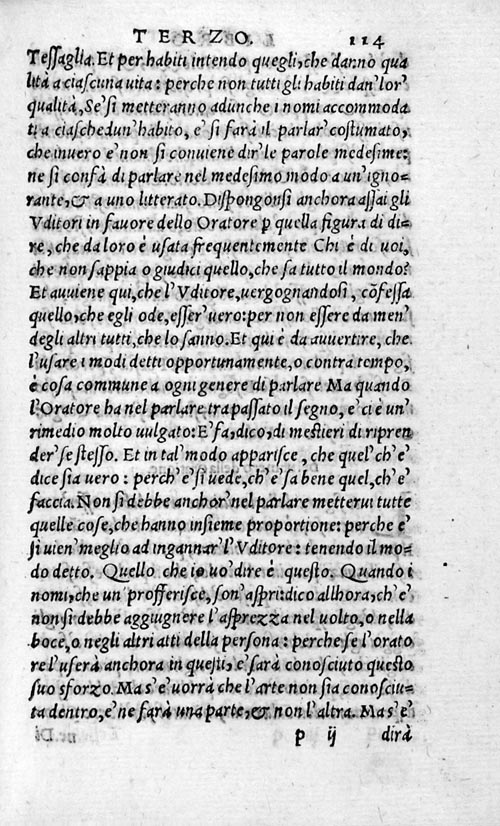 TERZO. 114
Tessaglia. Et per habiti intendo quegli, che danno qua
lità a ciascuna uita: perche non tutti gli habiti dan' lor'
qualità, Se' si metteranno adunche i nomi accommoda
ti a ciaschedun' habito, e' si farà il parlar' costumato,
che inuero e' non si conuiene dir' le parole medesime:
ne si confà di parlare nel medesimo modo a un' igno-
rante, & a uno litterato. Dispongonsi anchora assai gli
Vditori in fauore dello Oratore ꝑ quella figura di di-
re, che da loro è usata frequentemente Chi è di uoi,
che non sappia o giudici quello, che sa tutto il mondo?
Et auuiene qui, che l'Vditore, uergognandosi, cõfessa
quello, che egli ode, esser' uero: per non essere da men'
degli altri tutti, che lo sanno. Et qui è da auuertire, che
l'usare i modi detti opportunamente, o contra tempo,
è cosa commune a ogni genere di parlare Ma quando
l'Oratore ha nel parlare trapassato il segno, e' ci è un'
rimedio molto uulgato: E' fa, dico, di mestieri di ripren
der' se stesso. Et in tal' modo apparisce, che quel' ch' e'
dice sia uero: perch' e' si uede, ch' e' sa bene quel, ch' e'
faccia. Non si debbe anchor' nel parlare metterui tutte
quelle cose, che hanno insieme proportione: perche e'
si uien' meglio ad ingannar' l'Vditore: tenendo il mo-
do detto. Quello che io uo' dire è questo. Quando i
nomi, che un' profferisce, son' aspri: dico allhora, ch' e'
non si debbe aggiugnere l'asprezza nel uolto, o nella
boce, o negli altri atti della persona: perche se l'orato
re l'userà anchora in questi, e' sarà conosciuto questo
suo sforzo. Ma s' e' uorrà che l'arte non sia conosciu-
ta dentro, e' ne farà una parte, & non l'altra. Ma s' e'
p ij dirà